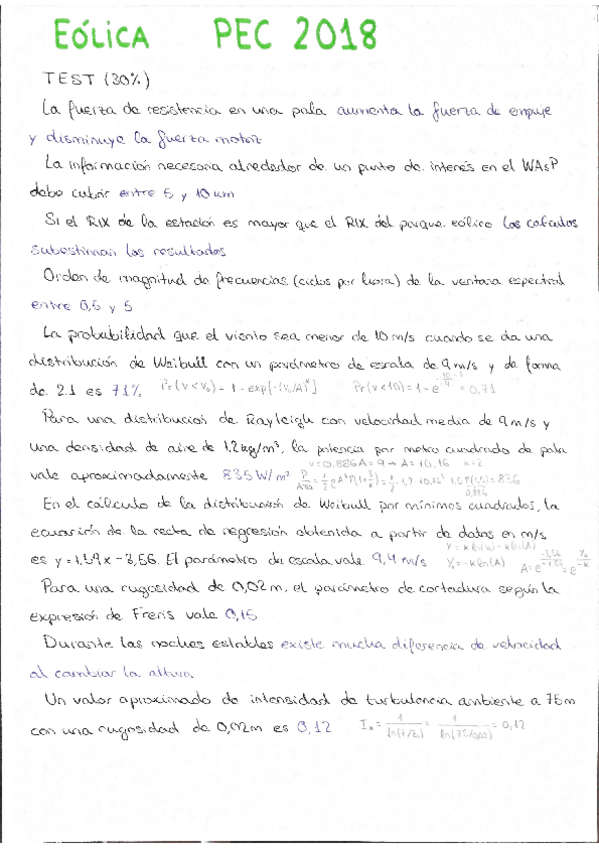 EÓLICA PEC 2018
TEST (30%)
La fuerza de resistencia en una pala aumenta la fuerza de empuje
y disminuye la fuerza motriz
La información necesaria alrededor de un punto de interés en el WAsP
debe cubrir entre 5 y 10 km
Si el RIX de la estación es mayor que el RIX del parque eólico los calculos
subestiman los resultados
Orden de magnitud de frecuencias (ciclos por hora) de la ventana espectral
entre 0,5 y 5
La probabilidad que el viento sea menor de 10 m/s cuando se da una
distribución de Weibull con un parámetro de escala de 9 m/s y de forma
de 2.1 es 71% Pr(v<v₀) = 1 - exp[-(v₀/A)ᵏ] Pr(v<10) = 1 - e = 0,71
Para una distribucion de Rayleigh con velocidad media de 9 m/s y
una densidad de aire de 1.2 kg/m³, la potencia por metro cuadrado de pala
v = 0,886 A = 9 → A = 10,16 k=2
vale aproximadamente 835 W/m²
En el cálculo de la distribución de Weibull por mínimos cuadrados, la
ecuación de la recta de regresión obtenida a partir de datos en m/s
Y = k ln(v) - k ln(A)
es y = 1,59x - 3,56. El parámetro de escala vale 9,4 m/s Y₀ = -k ln(A)
Para una rugosidad de 0,02m, el parámetro de cortadura según la
expresión de Freris vale 0,15
Durante las noches estables existe mucha diferencia de velocidad
al cambiar la altura
Un valor aproximado de intensidad de turbulencia ambiente a 75m
con una rugosidad de 0,02m es 0,12 = 1/ln(z/z₀) = 1/ln(75/0,02) = 0,12